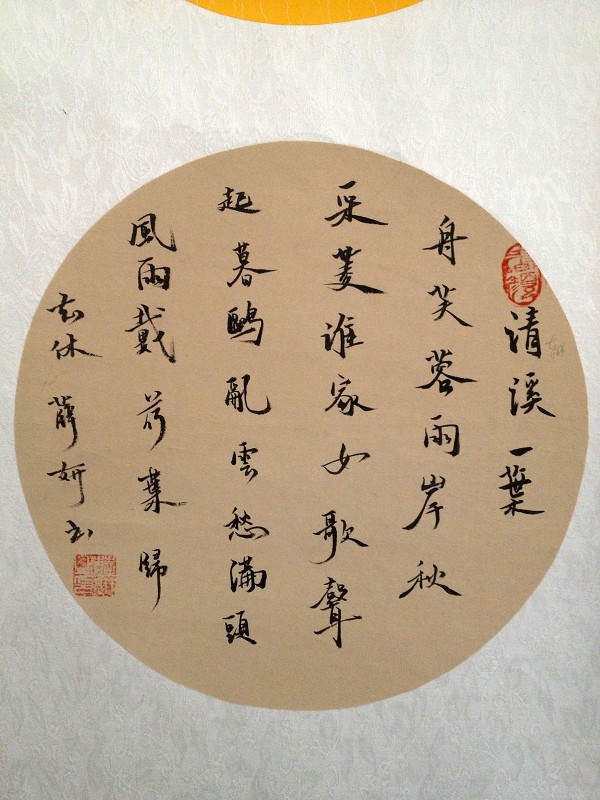 清溪一葉
舟芙蓉兩岸秋
采菱誰家女歌聲
起暮鷗亂雲愁滿頭
風雨戴荷葉歸
去休 薛妍书